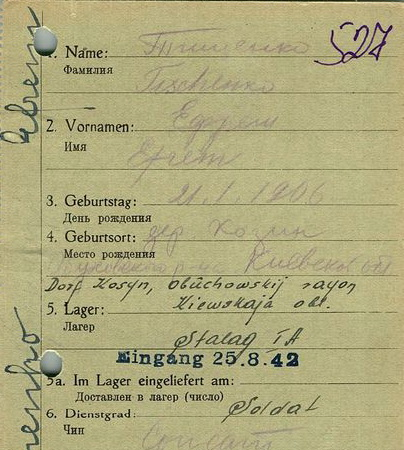 527
1. Name: Тищенко
Фамилия
Tischenko
2. Vornamen: Ефрем
Имя
Efrem
3. Geburtstag: 21.1.1906
День рождения
4. Geburtsort: дер.
Место рождения
Киевской обл
Dorf Kosyn, Obuchowskij rayon
5. Lager: Kiewskaja obl.
Лагер
Stalag IA
Eingang 25.8.42
5a. Im Lager eingeliefert am:
Доставлен в лагер (число)
6. Dienstgrad: Soldat
Чин